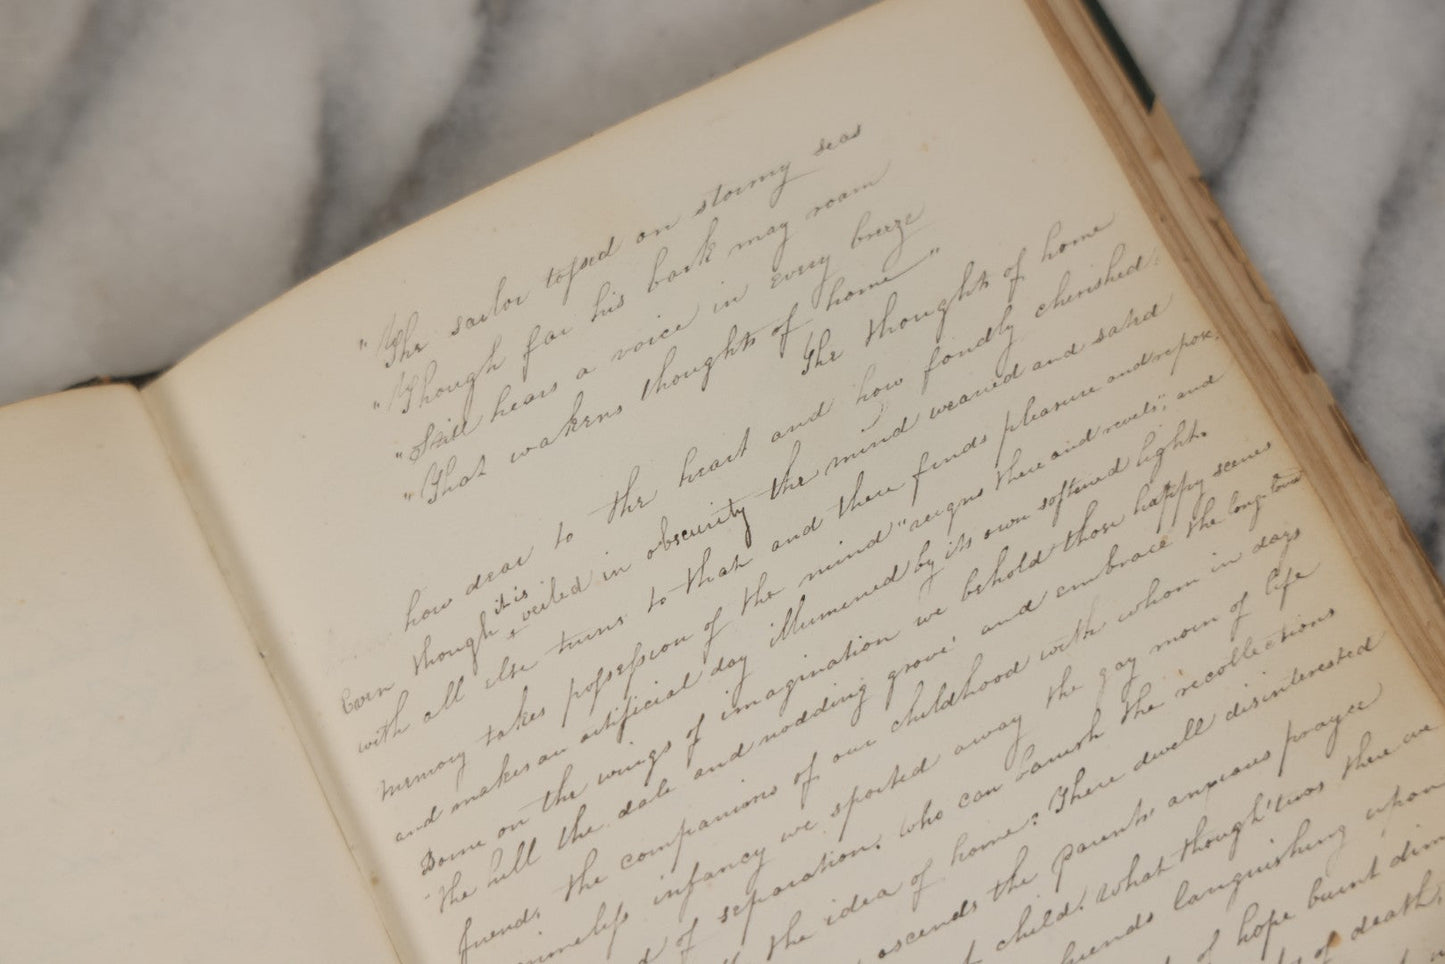 "The sailor tossed on stormy seas
"Though far his bark may roam
"Still hears a voice in every breeze
"That wakens thoughts of home"
The thoughts of home
how dear to the heart and how fondly cherished.
Even though it is veiled in obscurity the mind wearied and sated
with all else turns to that and there finds pleasure and repose.
memory takes possession of the mind "reigns there and revels", and
and makes an artificial day illumined by its own softened light.
Borne on the wings of imagination we behold those happy scenes
"the hill the dale and nodding grove" and embrace the long loved
friends, the companions of our childhood with whom in days
infancy we sported away the gay morn of life
of separation. Who can banish the recollections
the idea of home? There dwell disinterested
ascends the parents' anxious prayer
child. What though 'twas there we
friends languishing upon
of hope burnt dim
of death,